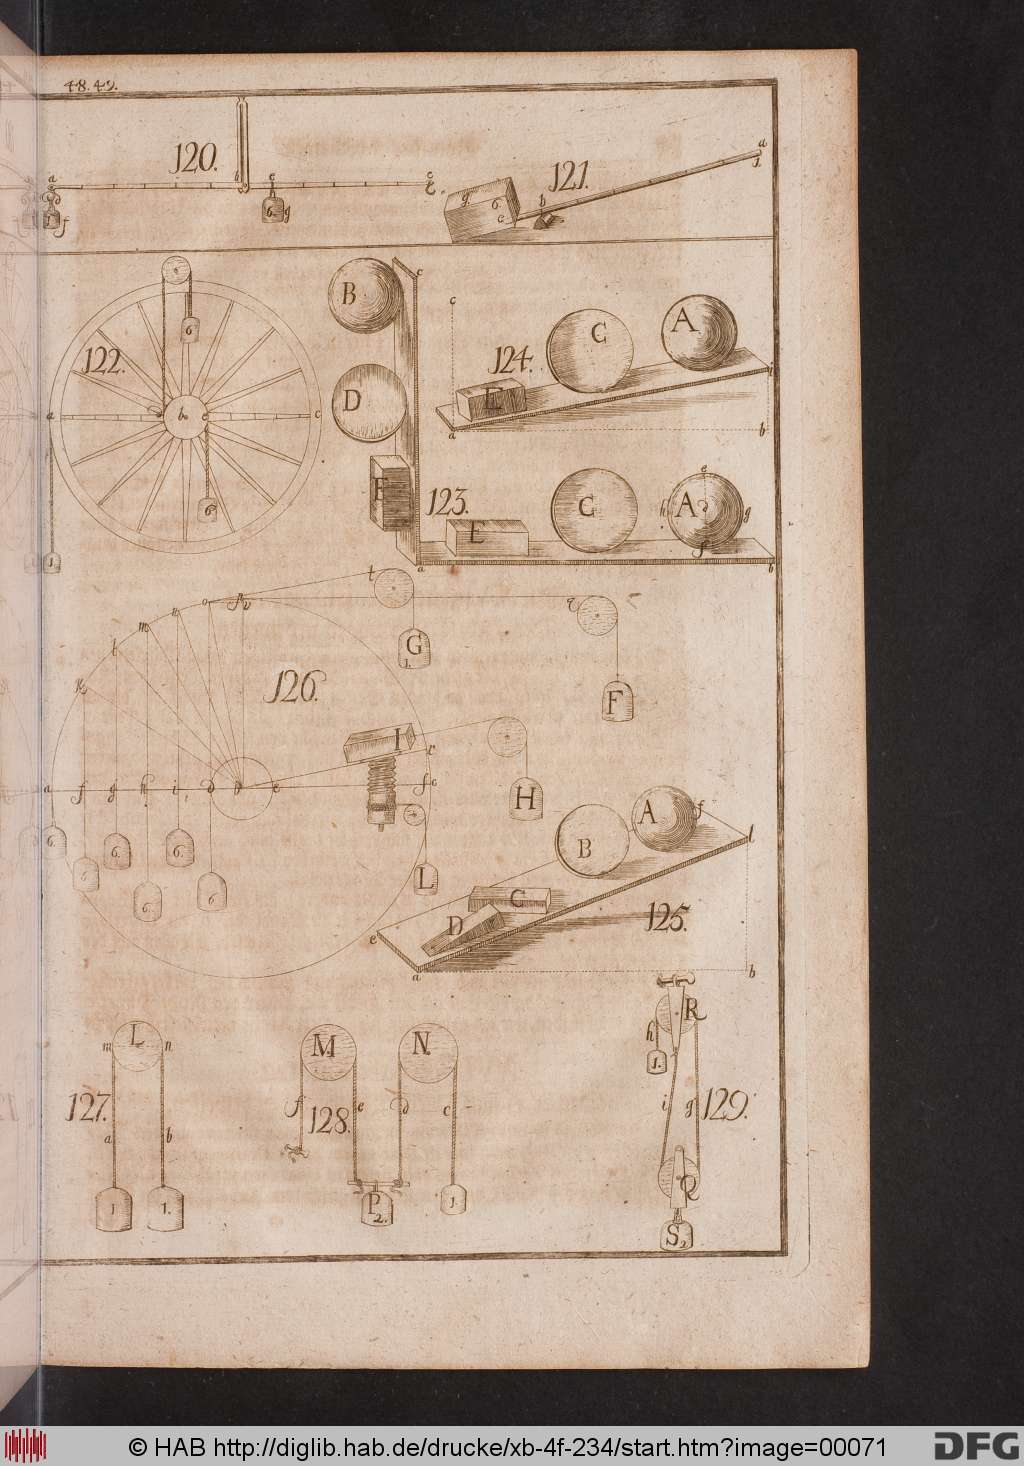 48.49.
120.
a
b
c
c
1.
f
6.
g
121.
a
1.
b
g
6.
c
122.
6
a
b.
c
6
1.
B
c
D
F
a
123.
E
C
e
h
A
g
f
b
c
124.
C
A
i
E
a
b
126.
t
G
1.
F
k
l
m
n
o
p
v
I
r
H
a
f
g
h
i
d
b
e
c
6.
6.
6.
6.
6.
6.
L
125.
A
f
B
l
C
D
e
a
b
127.
L
m
n
a
b
1
1.
128.
M
N.
f
e
d
c
P
2.
1.
129.
R
h
1.
i
g
Q
S2
© HAB http://diglib.hab.de/drucke/xb-4f-234/start.htm?image=00071
DFG